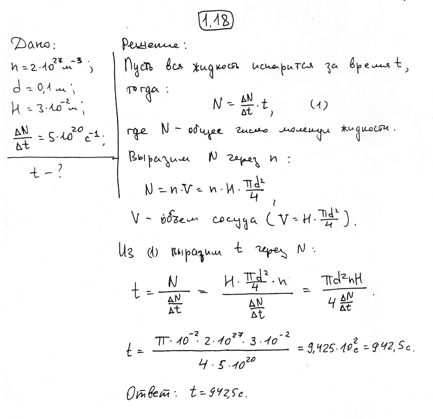 1.18
Дано:
n = 2·10²⁷ м⁻³;
d = 0,1 м;
H = 3·10⁻² м;
ΔN/Δt = 5·10²⁰ с⁻¹;
t - ?
Решение:
Пусть вся жидкость испарится за время t,
тогда:
N = ΔN/Δt · t, (1)
где N - общее число молекул жидкости.
Выразим N через n:
N = n·V = n·H·πd²/4,
V - объем сосуда (V = H·πd²/4).
Из (1) выразим t через N:
t = N/(ΔN/Δt) = (H·πd²/4·n)/(ΔN/Δt) = πd²nH/(4 ΔN/Δt).
t = (π·10⁻²·2·10²⁷·3·10⁻²)/(4·5·10²⁰) = 9,425·10² с = 942,5 с.
Ответ: t = 942,5 с.